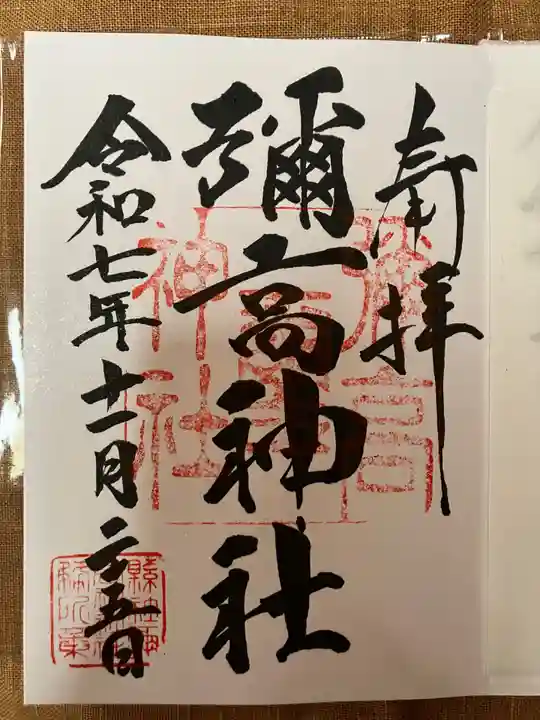 奉拝
彌高神社
令和七年十一月二十五日